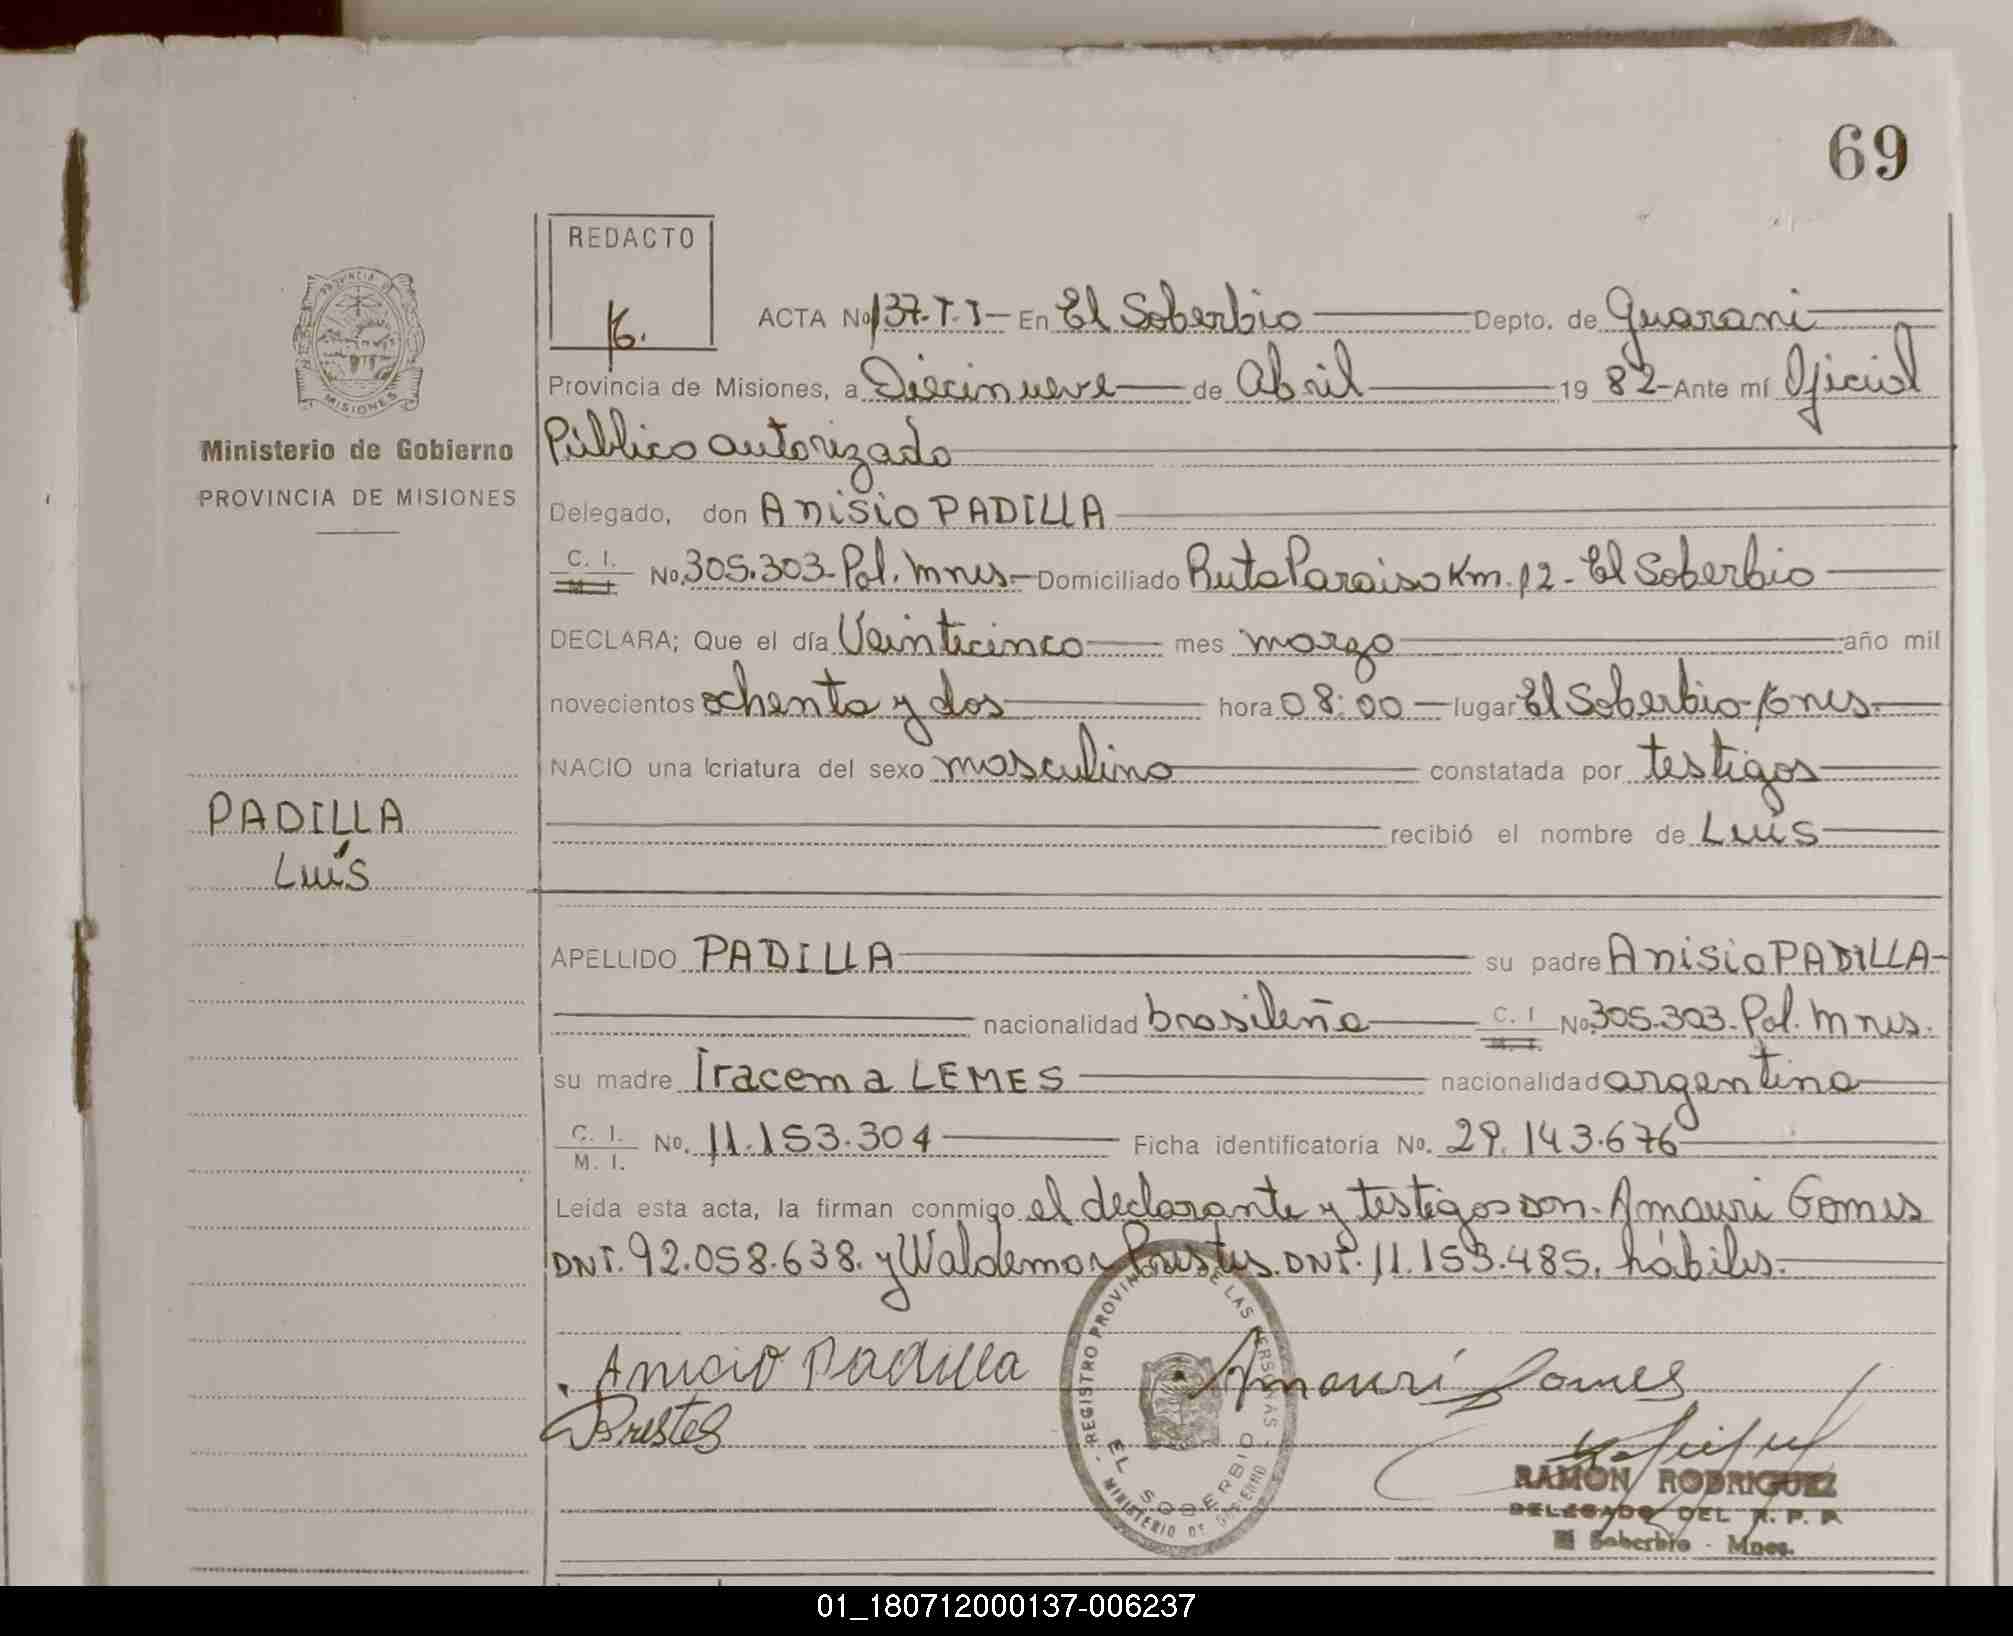 69
REDACTO
ACTA No 137. T. I - En El Soberbio Depto. de Guarani
Provincia de Misiones, a Diecinueve de Abril 19 82 - Ante mí Oficial
Público autorizado
Delegado, don Anisio PADILLA
C. I. M. I. No. 305.303 - Pol. Mnes. - Domiciliado Ruta Paraiso Km. 12 - El Soberbio
DECLARA; Que el día Veinticinco mes marzo año mil
novecientos ochenta y dos hora 08:00 - lugar El Soberbio - Mnes.
NACIO una criatura del sexo masculino constatada por testigos
recibió el nombre de Luís
APELLIDO PADILLA su padre Anisio PADILLA -
nacionalidad brasileña C. I. M. I. No. 305.303 - Pol. Mnes.
su madre Iracema LEMES nacionalidad argentina
C. I. M. I. No. 11.153.304 Ficha identificatoria No. 29.143.676
Leída esta acta, la firman conmigo el declarante y testigos don - Amauri Gomes
DNI. 92.058.638. y Waldemar Prestes. DNI. 11.153.485. hábiles. -
Anicio Padilla
Amauri Gomes
Prestes
REGISTRO PROVINCIAL DE LAS PERSONAS
EL SOBERBIO
MINISTERIO DE GOBIERNO
RAMON RODRIGUEZ
DELEGADO DEL R. P. P.
El Soberbio - Mnes.
PROVINCIA DE MISIONES
Ministerio de Gobierno
PROVINCIA DE MISIONES
PADILLA
Luís
01_180712000137-006237